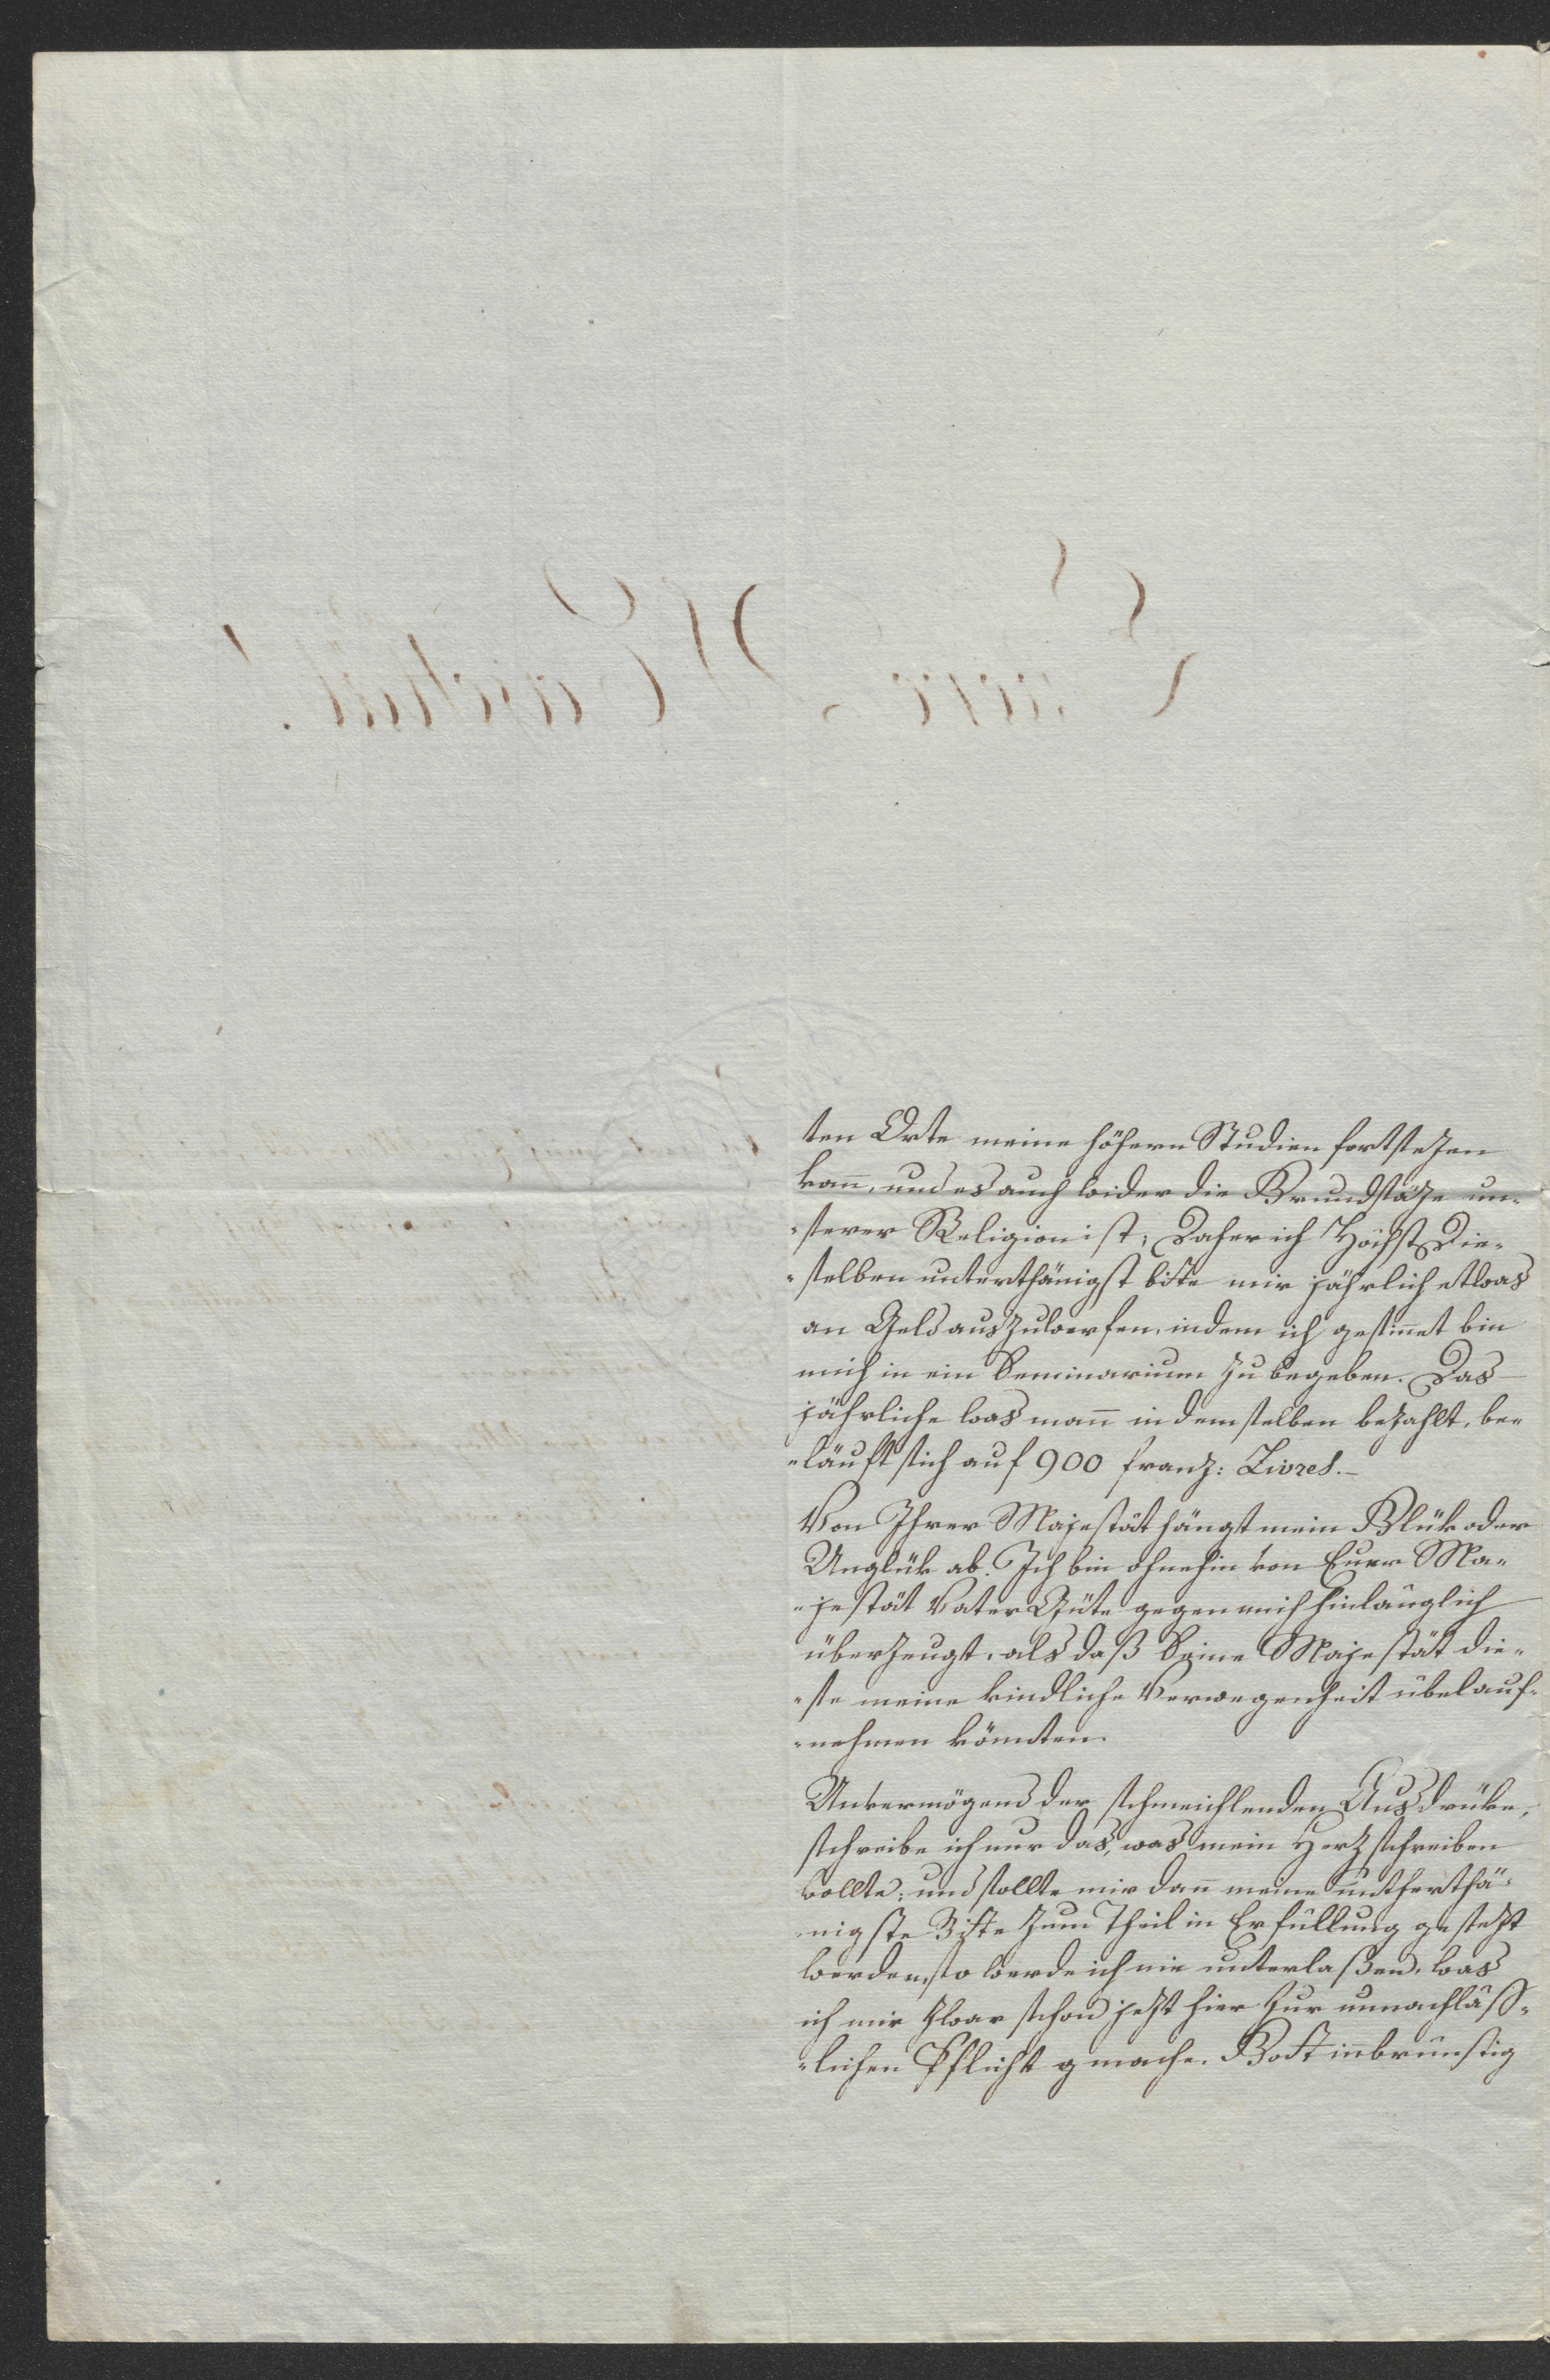 ten Orte meine höhern Studien fortsezen
kann, und es auch wider die Grundsäze un-
-serer Religion ist; Daher ich Höchst Die-
-selben unterthänigst bitte mir jährlich etwas
an Geld auszuwerfen, indem ich gesinnet bin
mich in ein Seminarium zu begeben. Das
jährliche was mann in demselben bezahlt, be-
-läuft sich auf 900 franz: Livres.-
Von Ihrer Majestät hängt mein Glük oder
Unglük ab. Ich bin ohnehin von Eurer Ma-
-jestät Vater Güte gegen mich hinlänglich
überzeugt, als daß Seine Majestät die-
-se meine kindliche Verwegenheit übel auf-
-nehmen könnten.
Unvermögend der schmeichlenden Ausdrüke,
schreibe ich nur das, was mein Herz schreiben
wollte; und sollte mir dann meine untherthä-
-nigste Bitte zum Theil in Erfüllung gesezt
werden, so werde ich nie unterlaßen, was
ich mir zwar schon jezt hier zur unnachläss-
-lichen Pflicht gmache. Gott inbrünstig